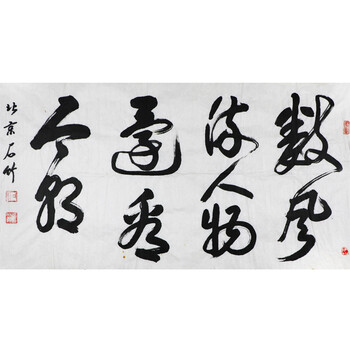 数风
流人物
还看
今朝
北京石竹